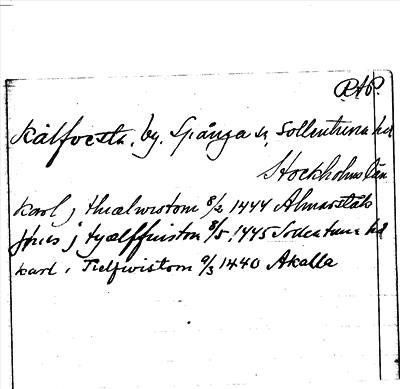 RAP.
Kälfvesta, by. Spånga sn, Sollentuna hd
Stockholms län
Karl j thiælwistom 8/2 1444 Almarstäk
Jöns j tyælffuistom 8/5 1445 Sollentuna hd
Karl i Tielfwistom 9/3 1440 Akalla